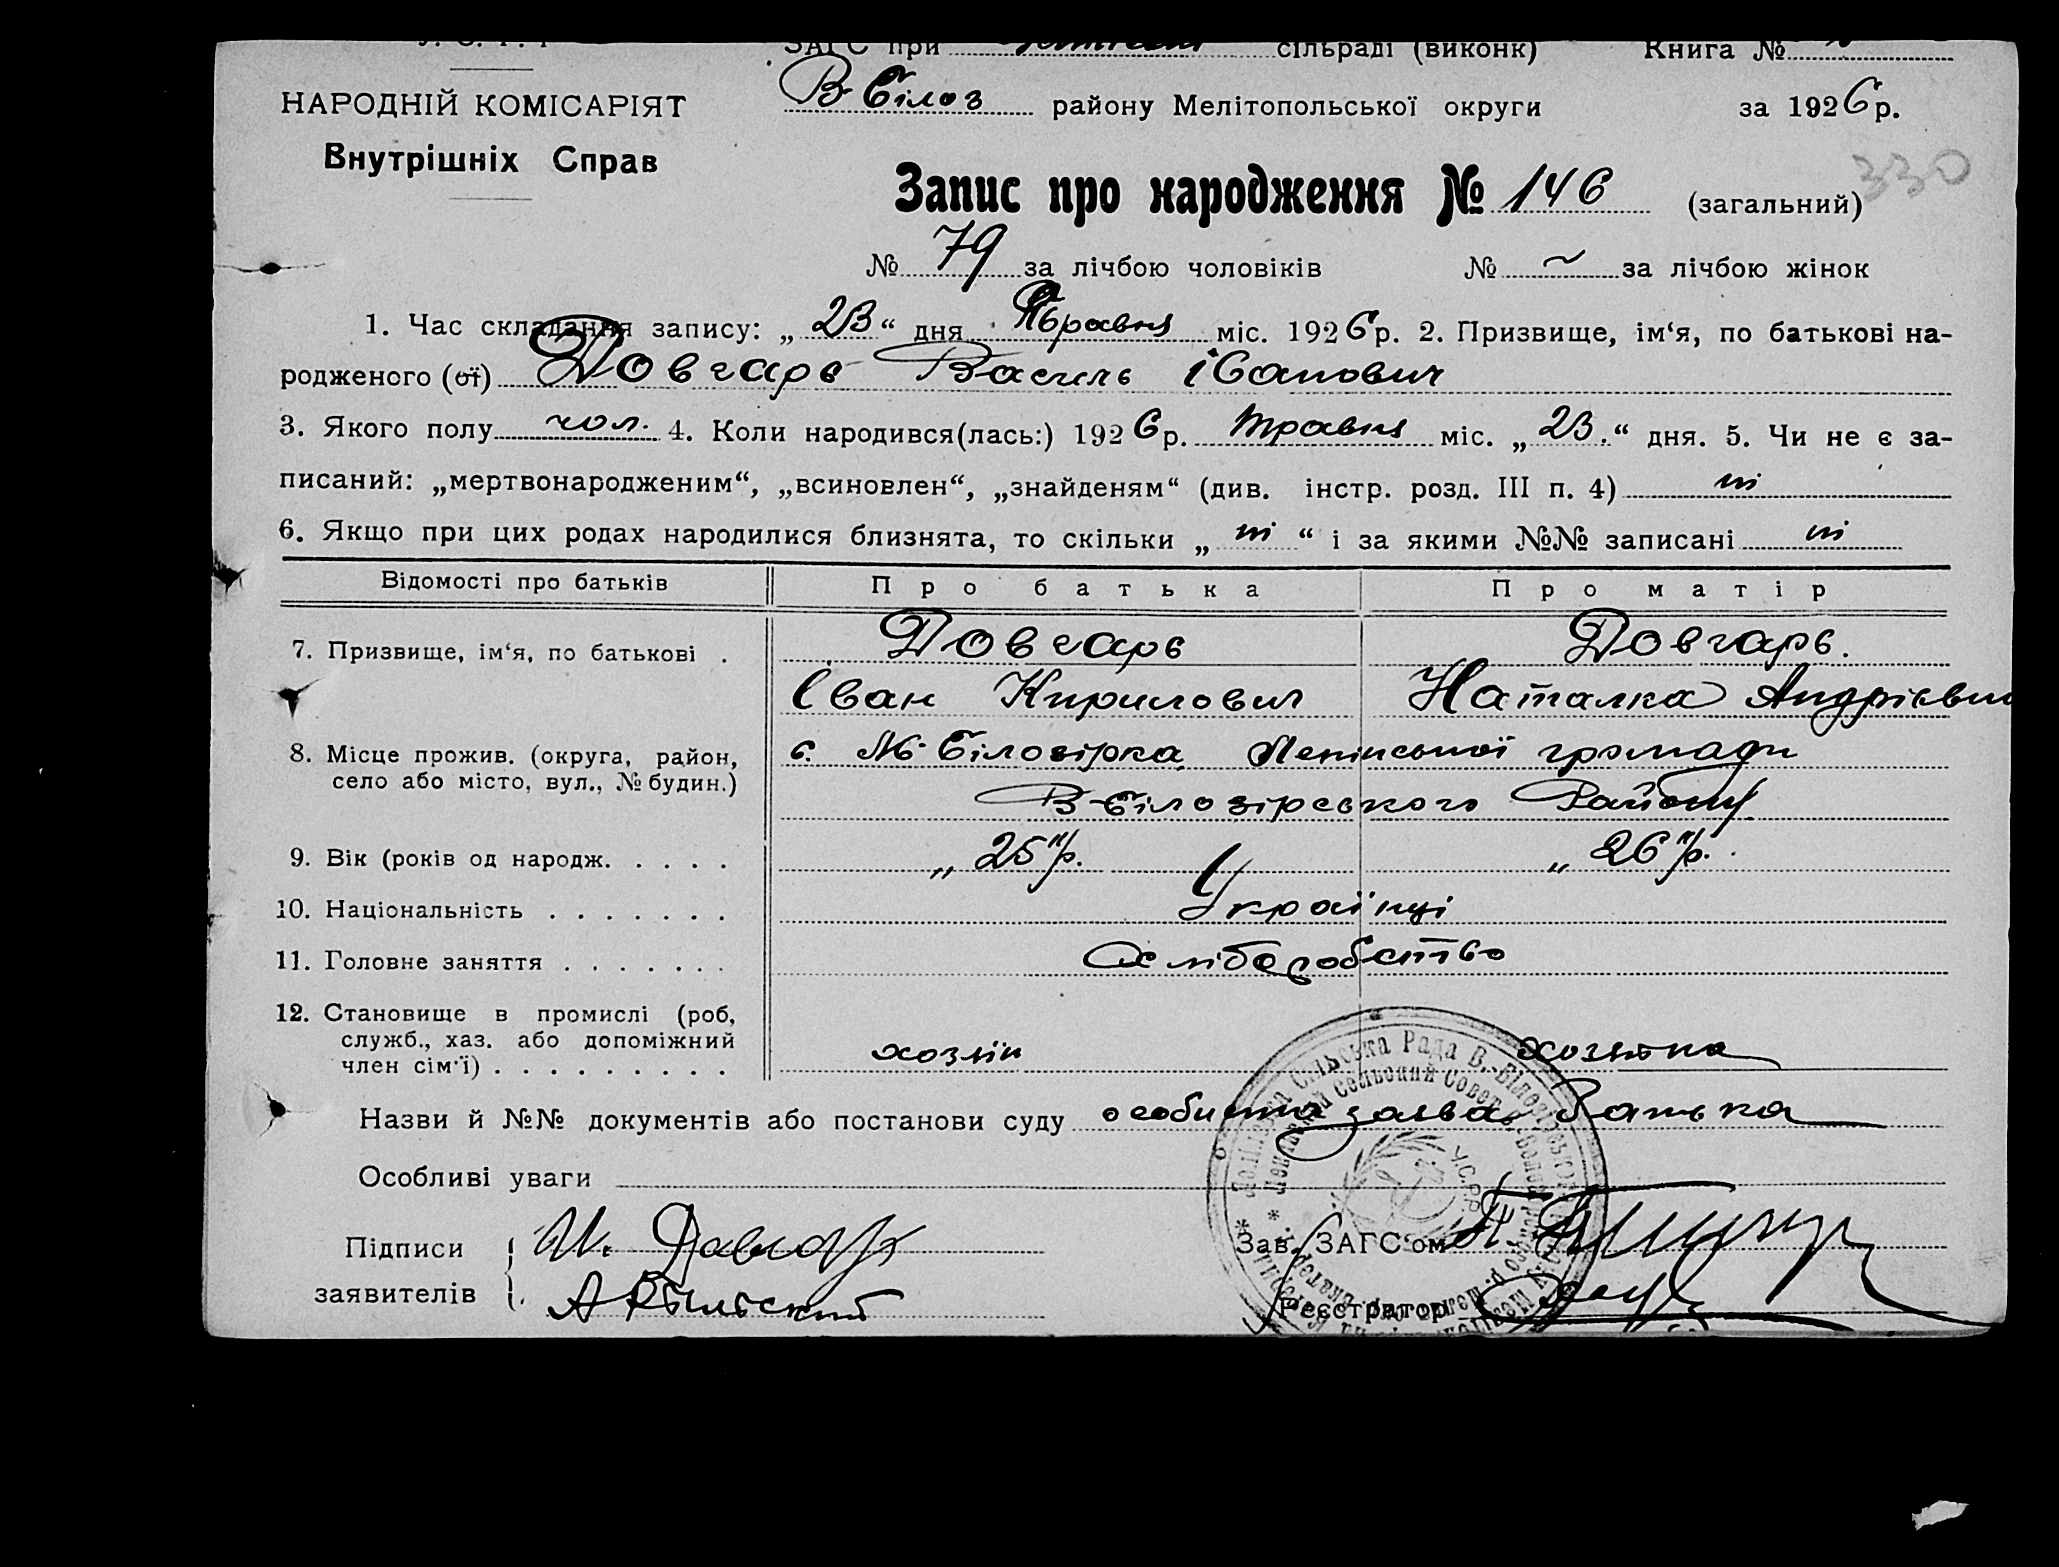 У. С. Р. Р
ЗАГС при сільраді (виконк) Книга №
НАРОДНІЙ КОМІСАРІЯТ В Білоз району Мелітопольської округи за 1926 р.
Внутрішніх Справ
330
Запис про народження № 146 (загальний)
№ 79 за лічбою чоловіків № ~ за лічбою жінок
1. Час складання запису: „ 23 “ дня Травня міс. 1926 р. 2. Призвище, ім‘я, по батькові на-
родженого (ої) Довгарь Василь Іванович
3. Якого полу чол. 4. Коли народився(лась:) 1926 р. травня міс. „ 23. “ дня. 5. Чи не є за-
писаний: „мертвонародженим“, „всиновлен“, „знайденям“ (див. інстр. розд. III п. 4) ні
6. Якщо при цих родах народилися близнята, то скільки „ ні “ і за якими №№ записані ні
Відомості про батьків Про батька Про матір
7. Призвище, ім‘я, по батькові . Довгарь Довгарь.
Іван Кирилович Наталка Андрієвн
8. Місце прожив. (округа, район, с. М. Білозірка Ленінської громади
село або місто, вул., № будин.)
В-Білозірського Району
9. Вік (років од народж. . . . . „ 25 р. „ 26 р.
10. Національність . . . . . . . Українці
11. Головне заняття . . . . . . . Хліборобство
12. Становище в промислі (роб,
служб., хаз. або допоміжний хозяін хозяйка
член сім‘ї) . . . . . . . . .
Назви й №№ документів або постанови суду особиста заява батька
Особливі уваги
Підписи И. Довгарь Зав. ЗАГС‘ом
заявителів А Реєстратор
Сільська Рада В.-Білозірськ
Сельский Совет
У.С.Р.Р.